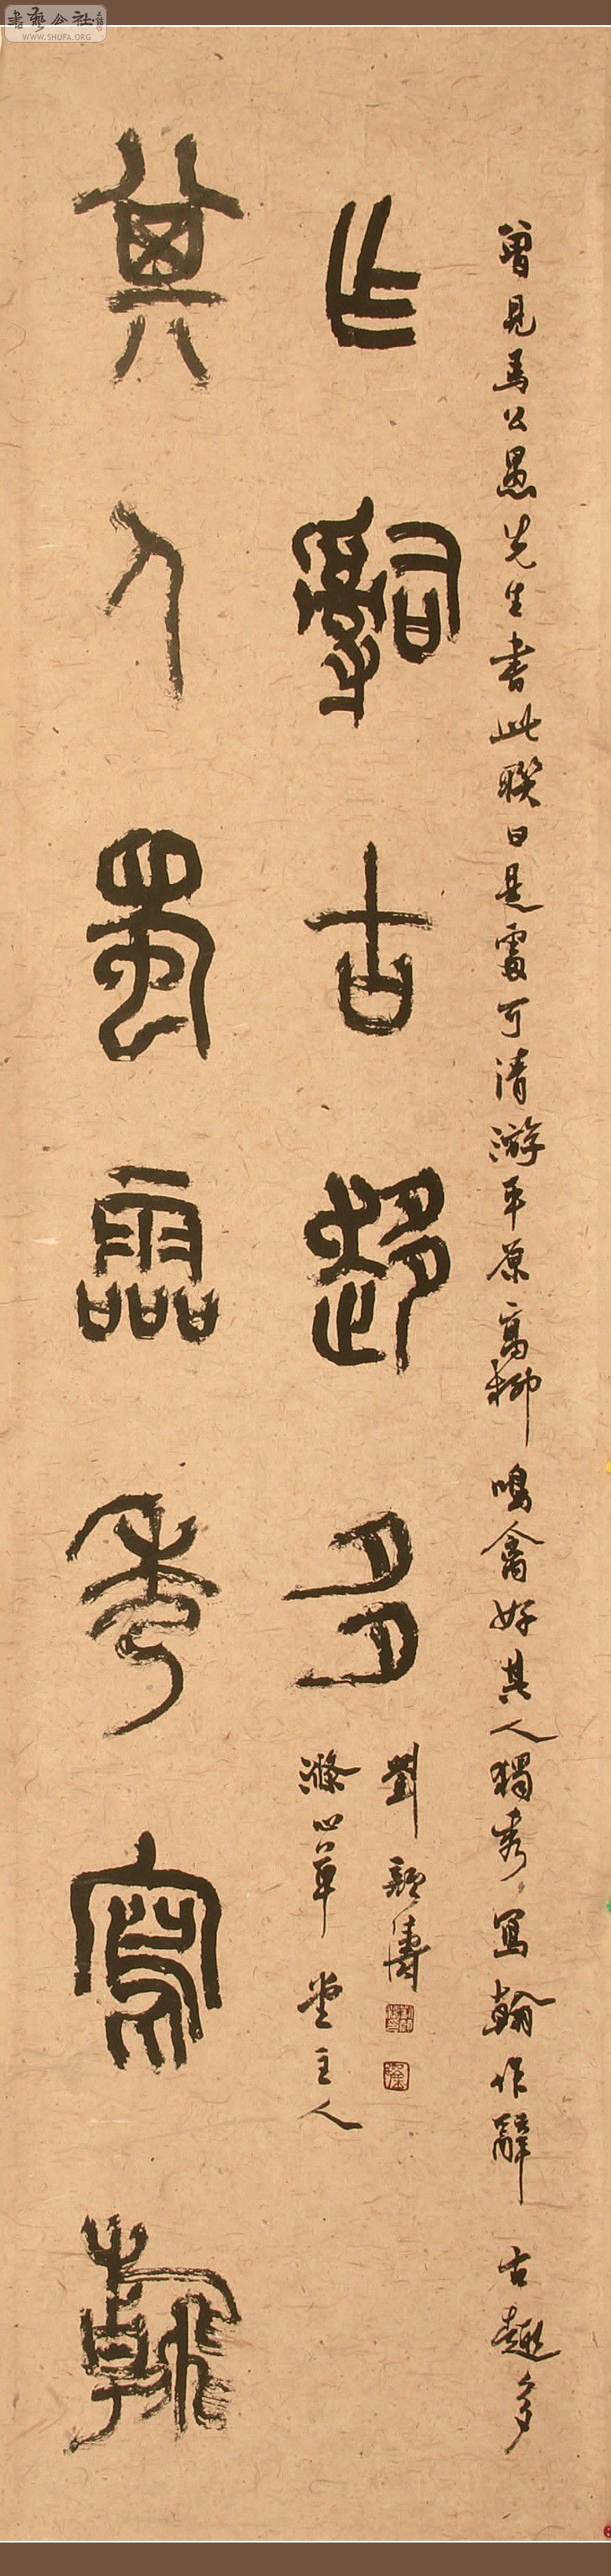 書藝公社
WWW.SHUFA.ORG
其人蜀霝秀寫翰
乍辭古趣多
曾見馬公愚先生書此聯曰是處可清游平原高柳鳴禽好其人獨秀寫翰作辭古趣多
劉顏濤
滌心草堂主人